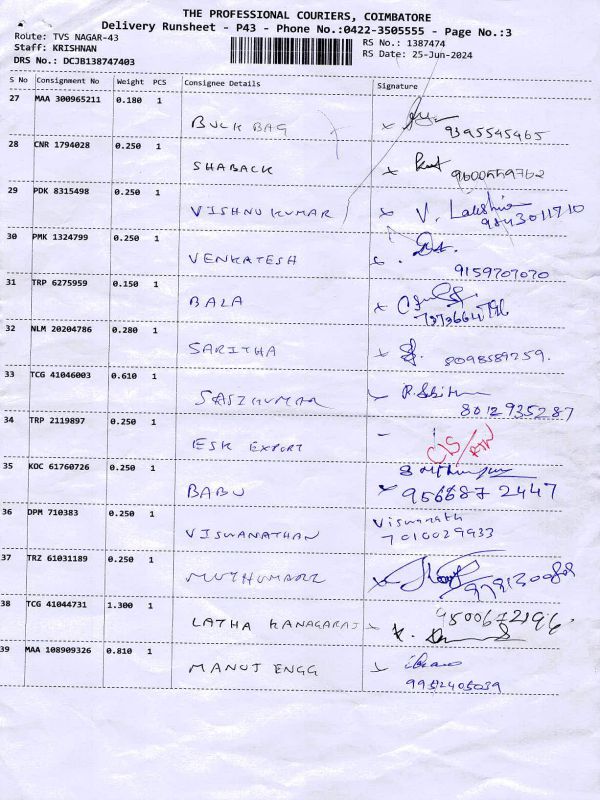 THE PROFESSIONAL COURIERS, COIMBATORE
Delivery Runsheet - P43 - Phone No.:0422-3505555 - Page No.:3
Route: TVS NAGAR-43
RS No.: 1387474
Staff: KRISHNAN
RS Date: 25-Jun-2024
DRS No.: DCJB138747403
S No Consignment No Weight PCS Consignee Details Signature
27 MAA 300965211 0.180 1
BULK BAG 9395545465
28 CNR 1794028 0.250 1
SHABACK
29 PDK 8315498 0.250 1
VISHNU KUMAR V. Lakshmi
9843011710
30 PMK 1324799 0.250 1
VENKATESH 9159707070
31 TRP 6275959 0.150 1
BALA 7373664796
32 NLM 20204786 0.280 1
SARITHA 8098589259.
33 TCG 41046003 0.610 1
SASIKUMAR
8012935287
34 TRP 2119897 0.250 1
ESK EXPORT - CIS/RTN
35 KOC 61760726 0.250 1
BABU 9566872447
36 DPM 710383 0.250 1 Viswanath
VISWANATHAN 7010029933
37 TRZ 61031189 0.250 1
MUTHUMARI
38 TCG 41044731 1.300 1 9500672196
LATHA KANAGARAJ
39 MAA 108909326 0.810 1
MANUJ ENGG
9952405039